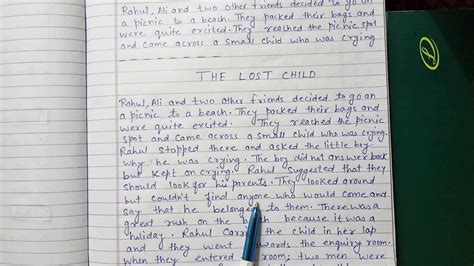 Rahul, Ali and two other friends decided to go on
a picnic to a beach. They packed their bags and
were quite excited. They reached the picnic spot
and came across a small child who was crying
THE LOST CHILD
Rahul, Ali and two other friends decided to go on
a picnic to a beach. They packed their bags and
were quite excited. They reached the picnic
spot and came across a small child who was crying.
Rahul stopped there and asked the little boy
why he was crying. The boy did not answer back
but kept on crying. Rahul suggested that they
should look for his parents. They looked around
but couldn't find anyone who would come and
say that he belonged to them. There was a
great rush on the beach because it was a
holiday. Rahul Carried the child in her lap
and they went towards the enquiry room.
when they entered room; two men were